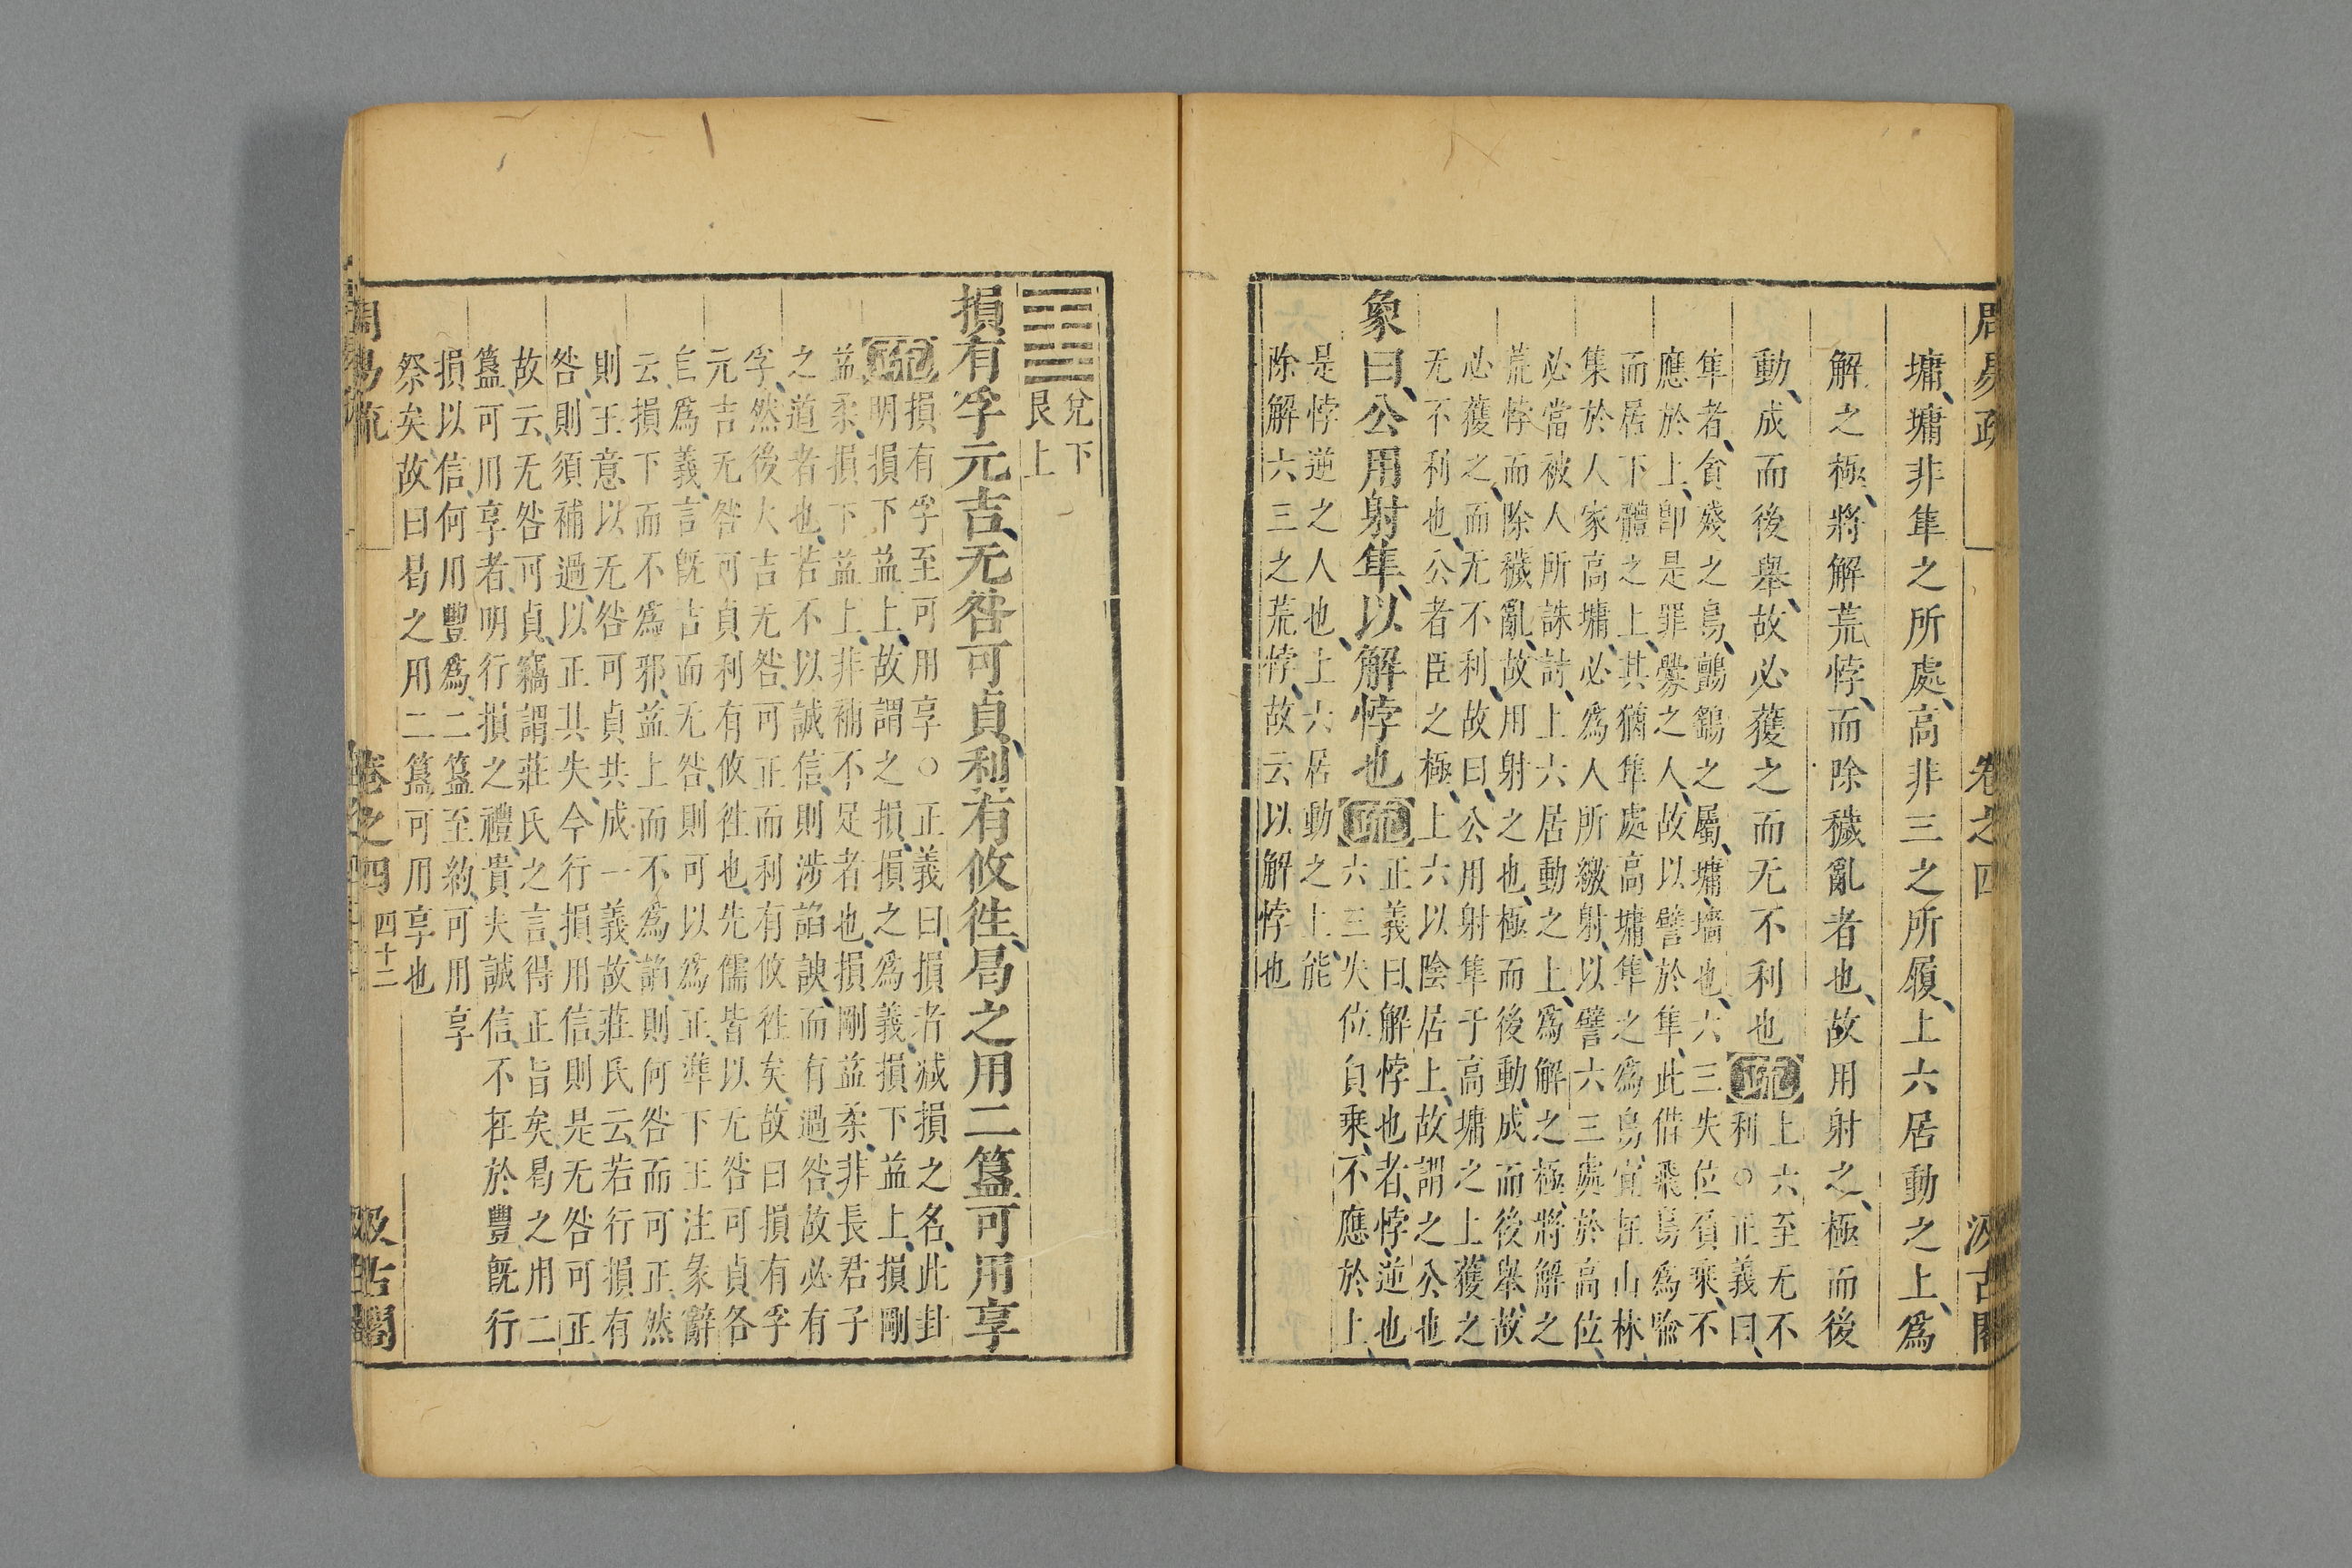 周易疏 卷之四 汲古閣
墉、墉非隼之所處、高非三之所履、上六居動之上、爲
解之極、將解荒悖、而除穢亂者也、故用射之、極而後
動、成而後舉、故必獲之而无不利也疏
上六至无不
利○正義曰、
隼者、貪殘之鳥、鸇鷂之屬、墉、墻也、六三失位負乘、不
應於上、卽是罪釁之人、故以譬於隼、此借飛鳥爲喻
而居下體之上、其猶隼處高墉、隼之爲鳥、宜在山林
集於人家高墉、必爲人所繳射、以譬六三處於高位、
必當被人所誅討、上六居動之上、爲解之極、將解之
荒悖而除穢亂、故用射之也、極而後動、成而後舉、故
必獲之、而无不利、故曰、公用射隼于高墉之上獲之
无不利也、公者臣之極、上六以陰居上、故謂之公也
象曰、公用射隼、以解悖也疏
正義曰、解悖也者、悖、逆也
六三失位負乘、不應於上、
是悖逆之人也、上六居動之上、能
除解六三之荒悖、故云以解悖也
兌下
艮上
損有孚元吉、无咎可貞、利有攸往、曷之用二簋可用享
疏
損有孚至可用享○正義曰、損者減損之名、此卦
明損下益上、故謂之損、損之爲義、損下益上、損剛
益柔、損下益上、非補不足者也、損剛益柔、非長君子
之道者也、若不以誠信、則涉諂諛、而有過咎、故必有
孚、然後大吉无咎、可正而利有攸往矣、故曰損有孚
元吉无咎可貞利有攸往也、先儒皆以无咎可貞、各
自爲義、言旣吉而无咎、則可以爲正、準下王注彖辭
云、損下而不爲邪、益上而不爲諂、則何咎而可正、然
則王意以无咎可貞共成一義、故莊氏云、若行損有
咎、則須補過、以正其失、今行損用信、則是无咎可正
故云、无咎可貞、竊謂莊氏之言、得正旨矣、曷之用二
簋、可用享者、明行損之禮、貴夫誠信、不在於豐旣行
損以信、何用豐爲、二簋至約、可用享
祭矣、故曰曷之用二簋可用享也
周易疏 卷之四 四十二 汲古閣